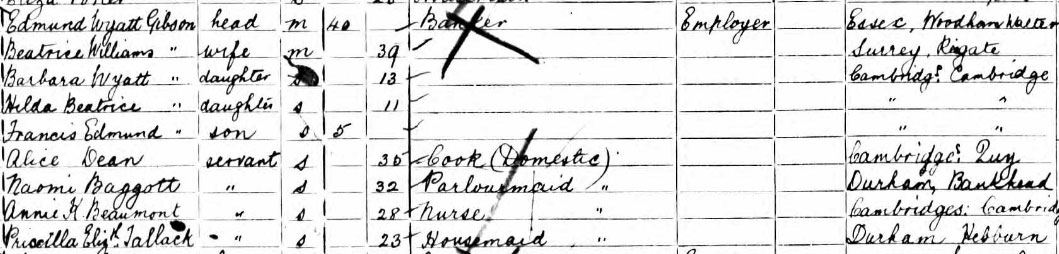 Edmund Wyatt Gibson head m 40 Banker Employer Essex, Woodham Walter
Beatrice Williams " wife m 39 Surrey, Rigate
Barbara Wyatt " daughter s 13 Cambridgs. Cambridge
Hilda Beatrice " daughter s 11 " "
Francis Edmund " son s 5 " "
Alice Dean servant s 30 Cook (Domestic) Cambridges. Quy
Naomi Baggott " s 32 Parlourmaid " Durham, Bankhead
Annie K Beaumont " s 28 Nurse " Cambridges: Cambridg
Priscilla Elizh. Tallack " s 23 Housemaid " Durham Hebburn